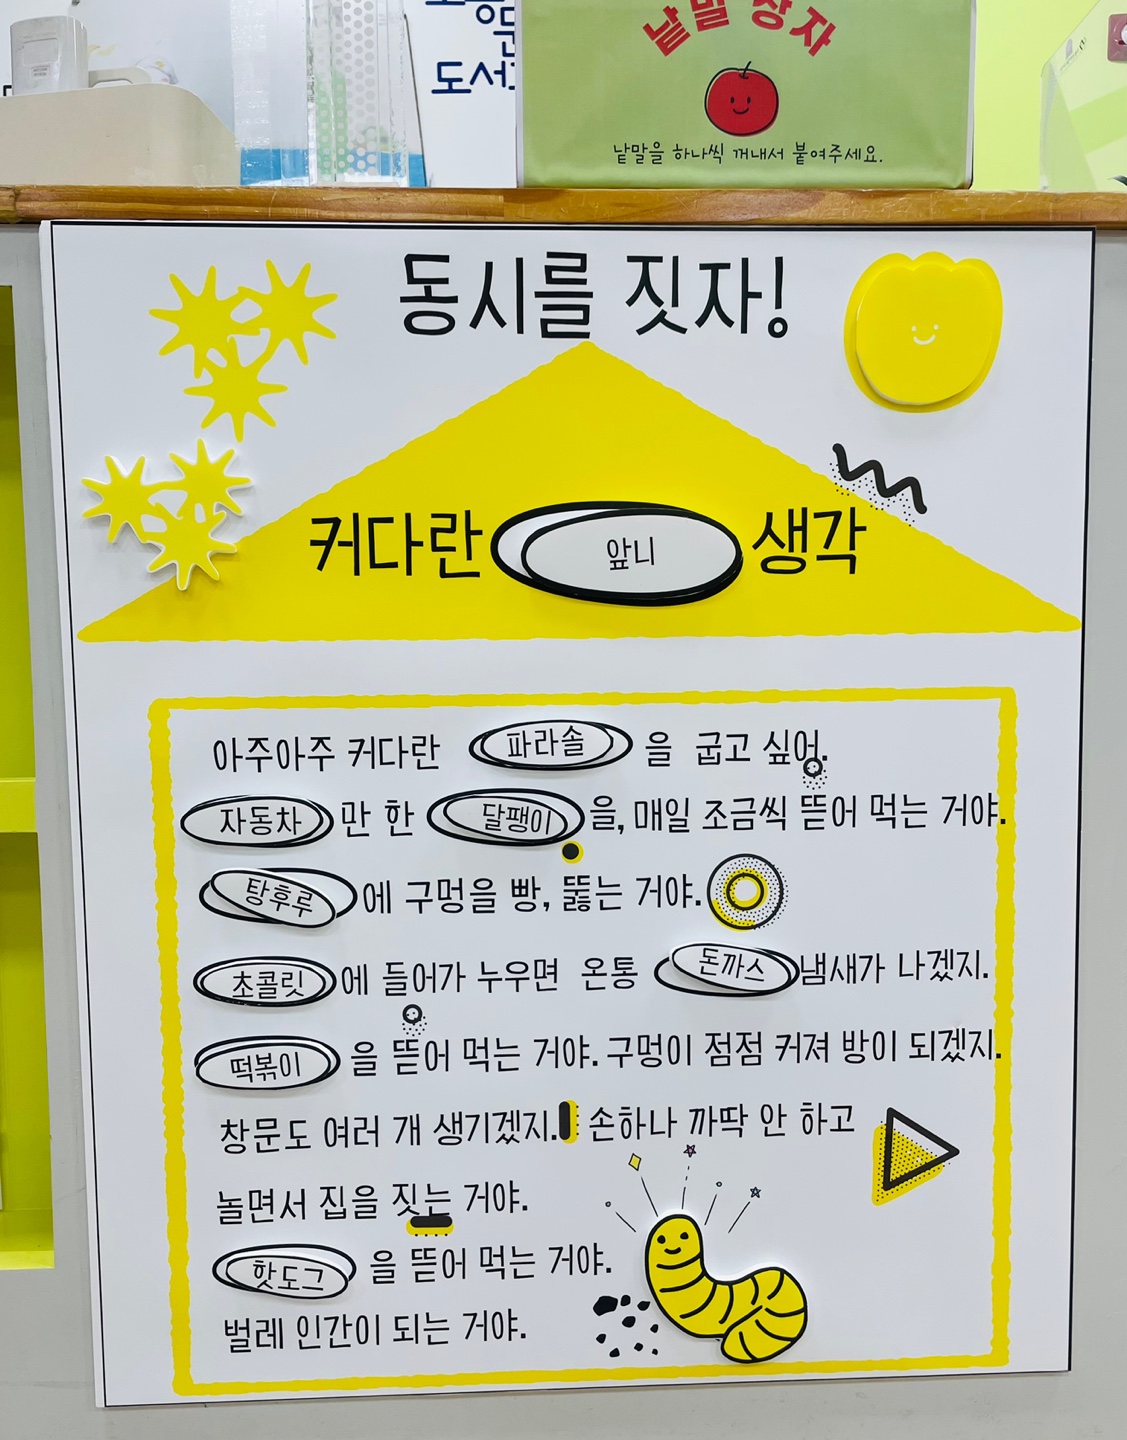 낱말 상자
낱말을 하나씩 꺼내서 붙여주세요.
동시를 짓자!
커다란 앞니 생각
아주아주 커다란 파라솔 을 굽고 싶어.
자동차 만 한 달팽이 을, 매일 조금씩 뜯어 먹는 거야.
탕후루 에 구멍을 빵, 뚫는 거야.
초콜릿 에 들어가 누우면 온통 돈까스 냄새가 나겠지.
떡볶이 을 뜯어 먹는 거야. 구멍이 점점 커져 방이 되겠지.
창문도 여러 개 생기겠지. 손하나 까딱 안 하고
놀면서 집을 짓는 거야.
핫도그 을 뜯어 먹는 거야.
벌레 인간이 되는 거야.